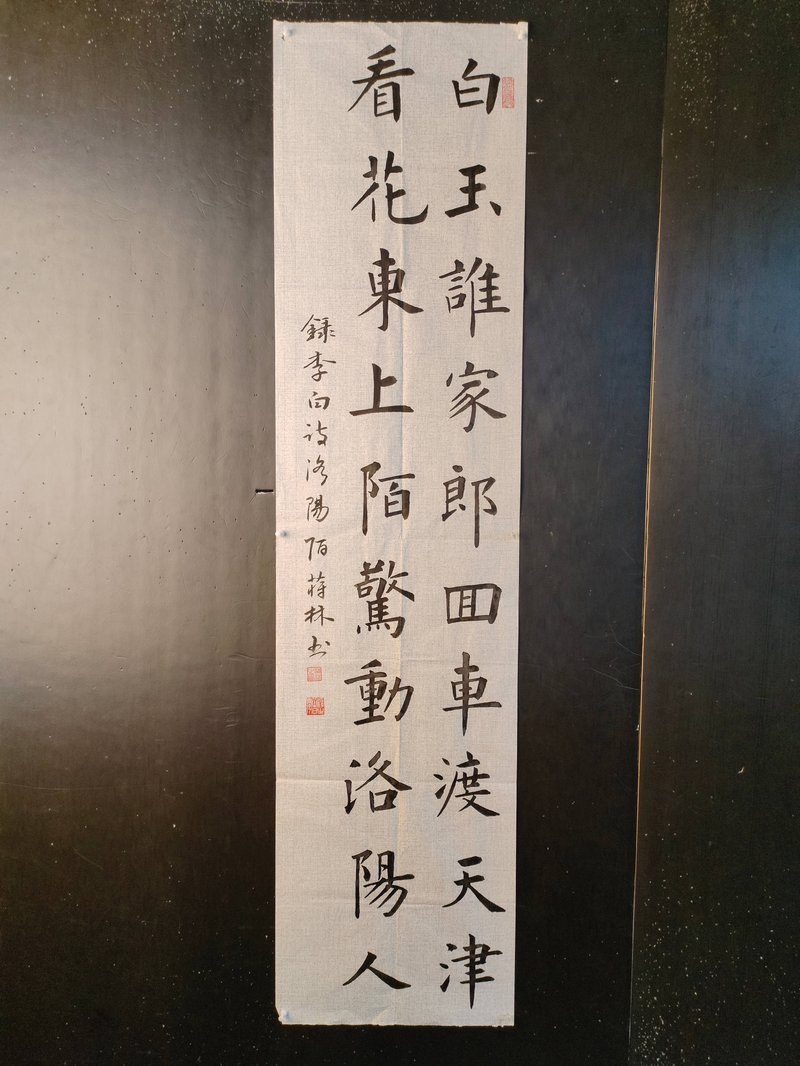 白玉誰家郎回車渡天津
看花東上陌驚動洛陽人
録李白诗洛陽陌蒋林书